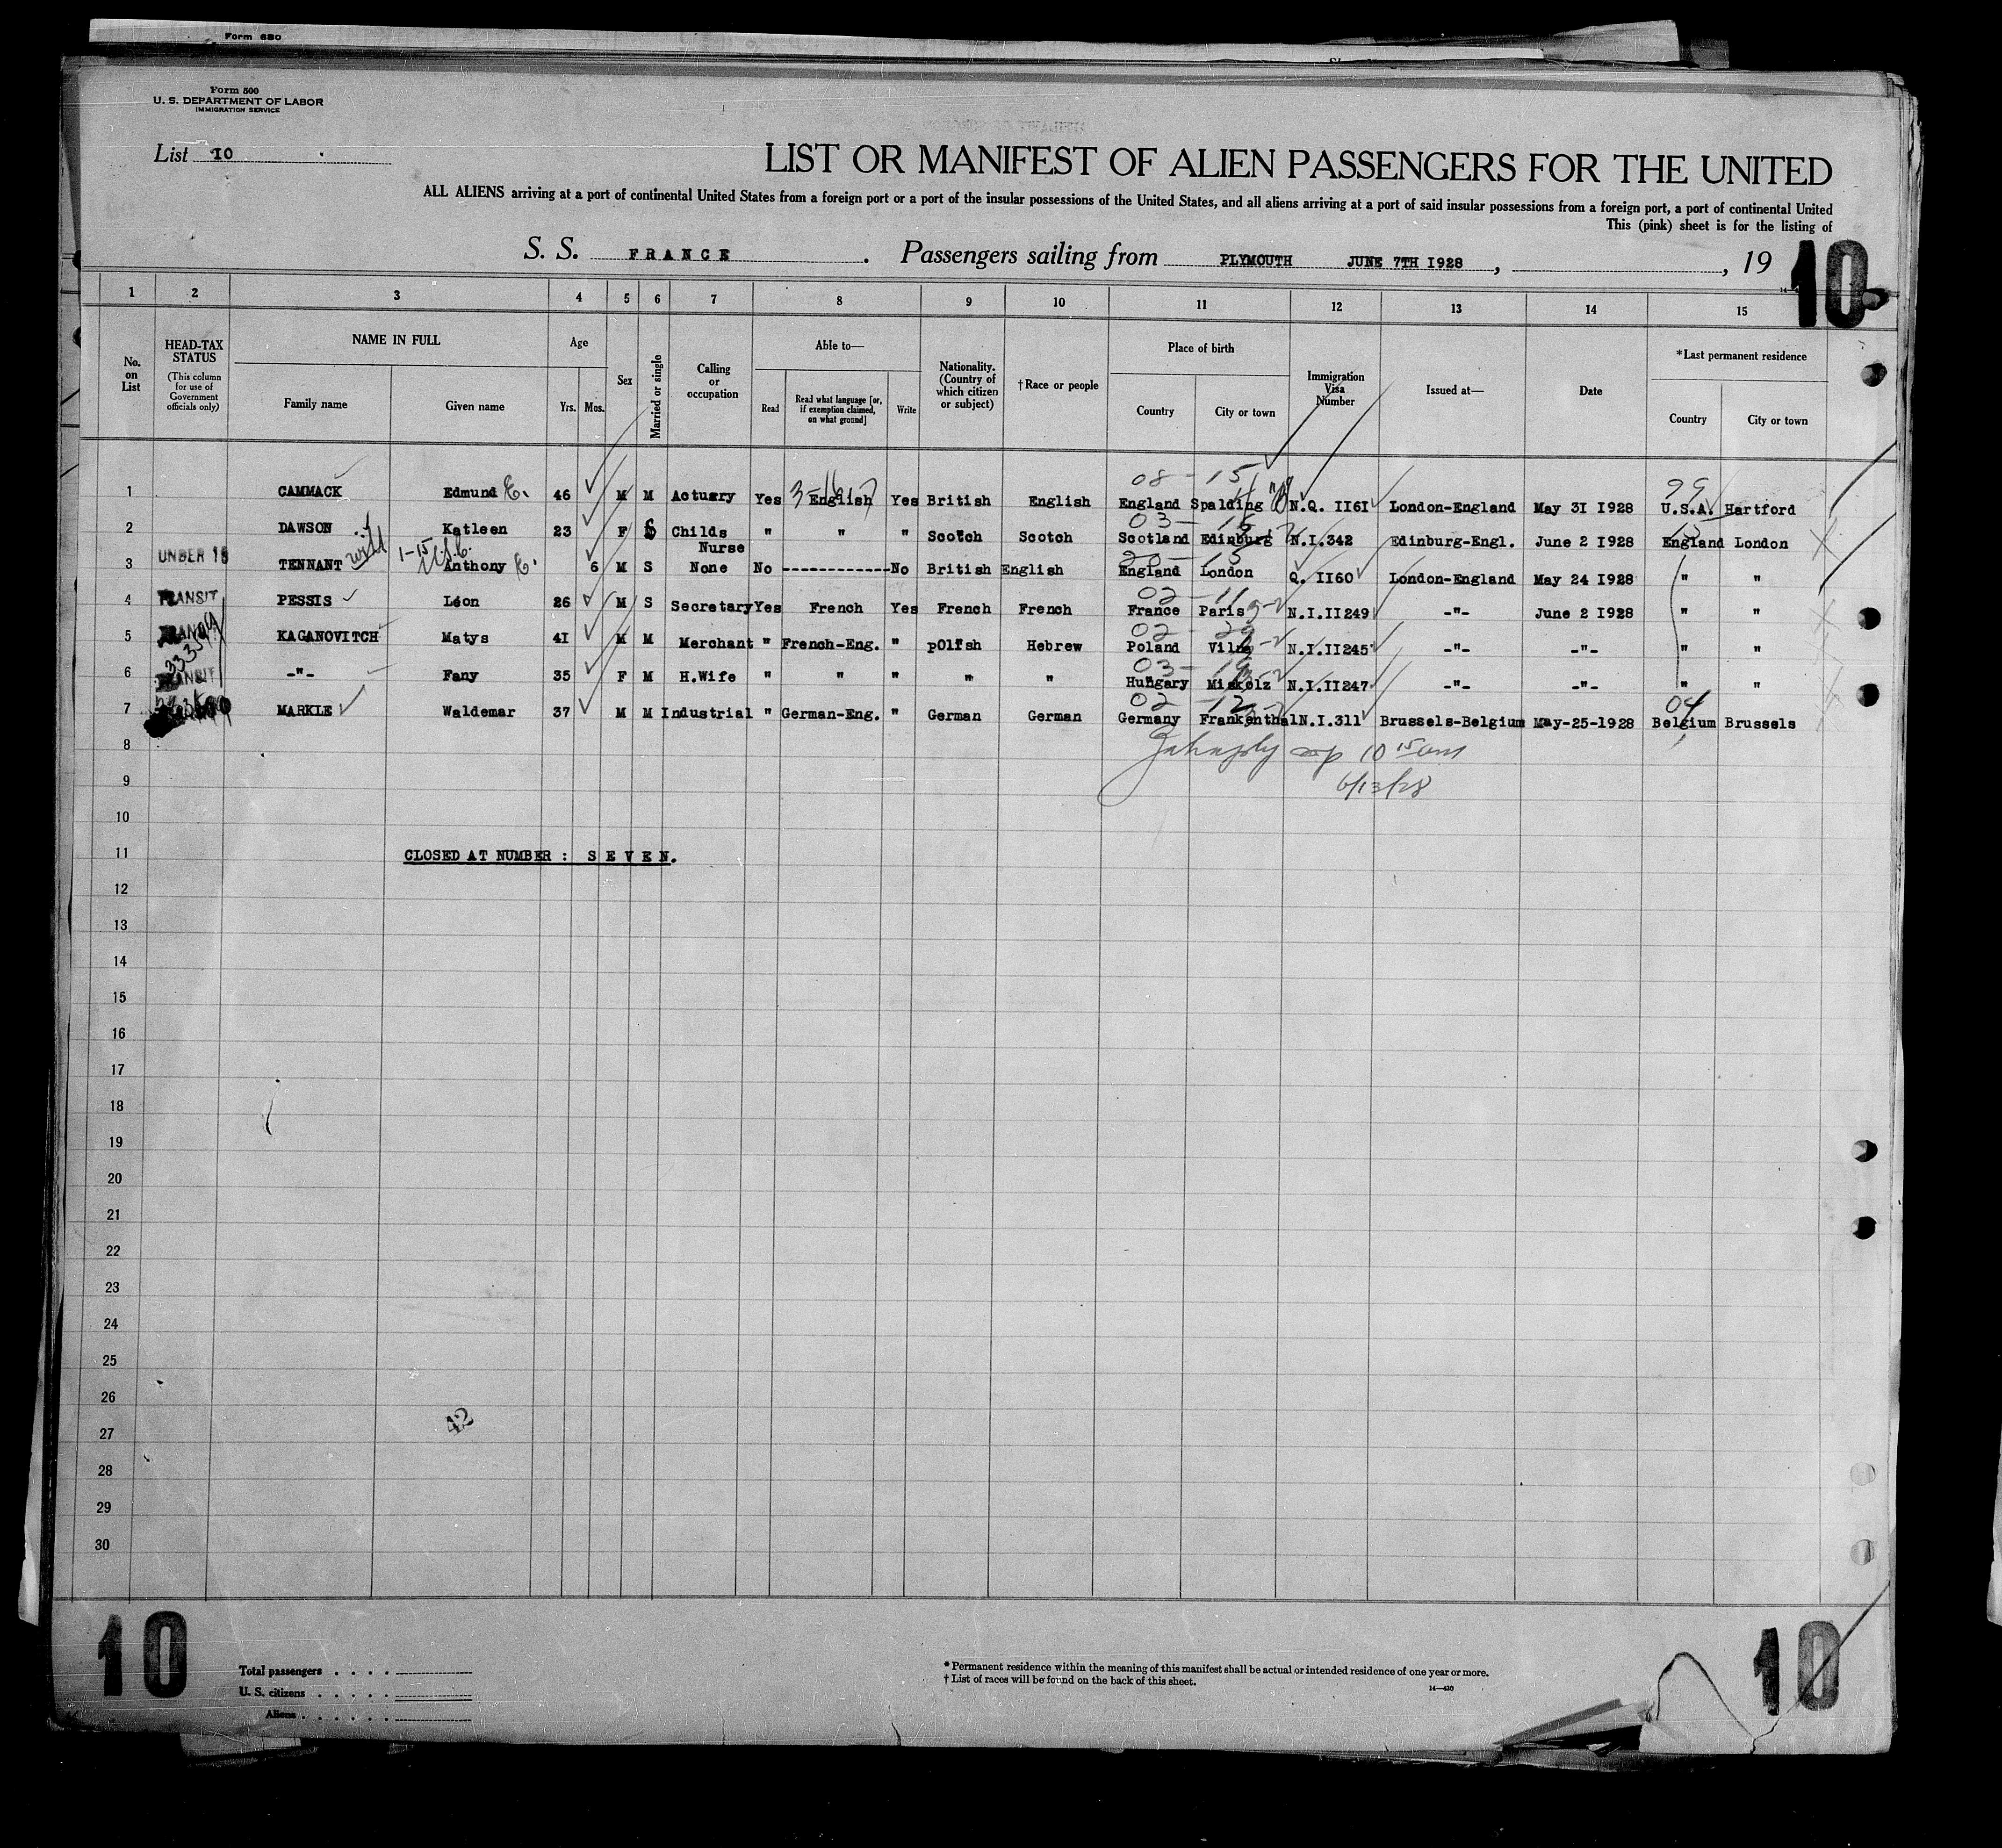 Form 680
Form 500
U. S. DEPARTMENT OF LABOR
IMMIGRATION SERVICE
List 10
LIST OR MANIFEST OF ALIEN PASSENGERS FOR THE UNITED
ALL ALIENS arriving at a port of continental United States from a foreign port or a port of the insular possessions of the United States, and all aliens arriving at a port of said insular possessions from a foreign port, a port of continental United
This (pink) sheet is for the listing of
S. S. FRANCE. Passengers sailing from PLYMOUTH JUNE 7TH 1928, , 19
10
1 2 3 4 5 6 7 8 9 10 11 12 13 14 15
No. on List
HEAD-TAX STATUS
(This column for use of Government officials only)
NAME IN FULL
Family name Given name
Age
Yrs. Mos.
Sex
Married or single
Calling or occupation
Able to—
Read Read what language [or, if exemption claimed, on what ground] Write
Nationality. (Country of which citizen or subject)
†Race or people
Place of birth
Country City or town
Immigration Visa Number
Issued at—
Date
*Last permanent residence
Country City or town
08 - 15 99
1 CAMMACK Edmund E. 46 M M Actuary Yes English Yes British English England Spalding N.Q. II6I London-England May 3I I928 U.S.A. Hartford
03 - 15
2 DAWSON Katleen 23 F S Childs Nurse " " " Scotch Scotch Scotland Edinburg N.I.342 Edinburg-Engl. June 2 I928 England London
UNDER 16 1-15
3 TENNANT Anthony E. 6 M S None No ------------ No British English England London Q. II60 London-England May 24 I928 " "
02 - 11
4 TRANSIT PESSIS Léon 26 M S Secretary Yes French Yes French French France Paris N.I.II249 -"- June 2 I928 " "
02 - 29
5 KAGANOVITCH Matys 4I M M Merchant " French-Eng. " pOlish Hebrew Poland Vilna N.I.II245 -"- -"- " "
03 - 19
6 TRANSIT -"- Fany 35 F M H.Wife " " " " " Hungary Miskolz N.I.II247 -"- -"- " "
02 - 12 04
7 MARKLE Waldemar 37 M M Industrial " German-Eng. " German German Germany Frankenthal N.I.311 Brussels-Belgium May-25-1928 Belgium Brussels
8 10 15 am
9 6/13/28
10
11 CLOSED AT NUMBER : S E V E N.
12
13
14
15
16
17
18
19
20
21
22
23
24
25
26
27 42
28
29
30
10
Total passengers . . . .
U. S. citizens . . . . .
Aliens . . . . . .
* Permanent residence within the meaning of this manifest shall be actual or intended residence of one year or more.
† List of races will be found on the back of this sheet.
14—430
10